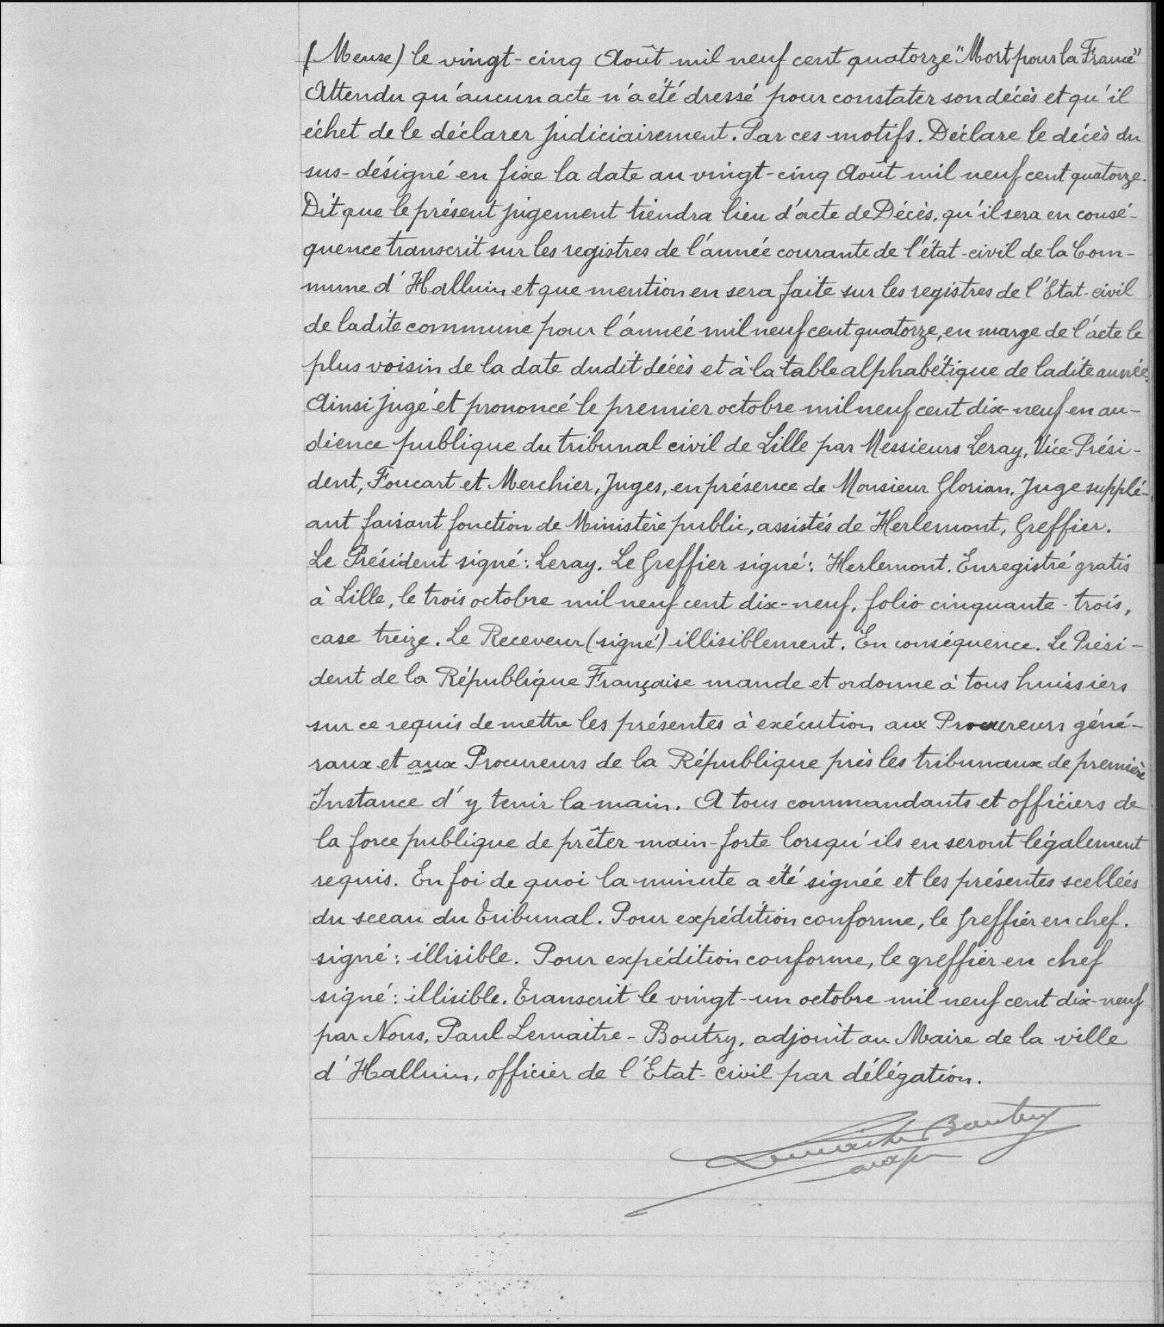 (Meuse) le vingt-cinq Août mil neuf cent quatorze "Mort pour la France"
Attendu qu'aucun acte n'a été dressé pour constater son décès et qu'il
échet de le déclarer judiciairement. Par ces motifs. Déclare le décès du
sus-désigné en fixe la date au vingt-cinq Août mil neuf cent quatorze.
Dit que le présent jugement tiendra lieu d'acte de Décès, qu'il sera en consé-
quence transcrit sur les registres de l'année courante de l'état-civil de la Com-
mune d'Halluin et que mention en sera faite sur les registres de l'Etat-civil
de ladite commune pour l'année mil neuf cent quatorze, en marge de l'acte le
plus voisin de la date dudit décès et à la table alphabétique de ladite année.
Ainsi jugé et prononcé le premier octobre mil neuf cent dix-neuf en au-
dience publique du tribunal civil de Lille par Messieurs Leray, Vice-Prési-
dent, Foucart et Merchier, Juges, en présence de Monsieur Glorian, Juge supplé-
ant faisant fonction de Ministère public, assistés de Herlemont, Greffier.
Le Président signé: Leray. Le Greffier signé: Herlemont. Enregistré gratis
à Lille, le trois octobre mil neuf cent dix-neuf, folio cinquante-trois,
case treize. Le Receveur (signé) illisiblement. En conséquence. Le Prési-
dent de la République Française mande et ordonne à tous huissiers
sur ce requis de mettre les présentes à exécution aux Procureurs géné-
raux et aux Procureurs de la République près les tribunaux de première
Instance d'y tenir la main. A tous commandants et officiers de
la force publique de prêter main-forte lorsqu'ils en seront légalement
requis. En foi de quoi la minute a été signée et les présentes scellées
du sceau du tribunal. Pour expédition conforme, le Greffier en chef.
signé: illisible. Pour expédition conforme, le greffier en chef
signé: illisible. Transcrit le vingt-un octobre mil neuf cent dix-neuf
par Nous, Paul Lemaitre-Boutry, adjoint au Maire de la ville
d'Halluin, officier de l'Etat-civil par délégation.
Lemaitre Boutry